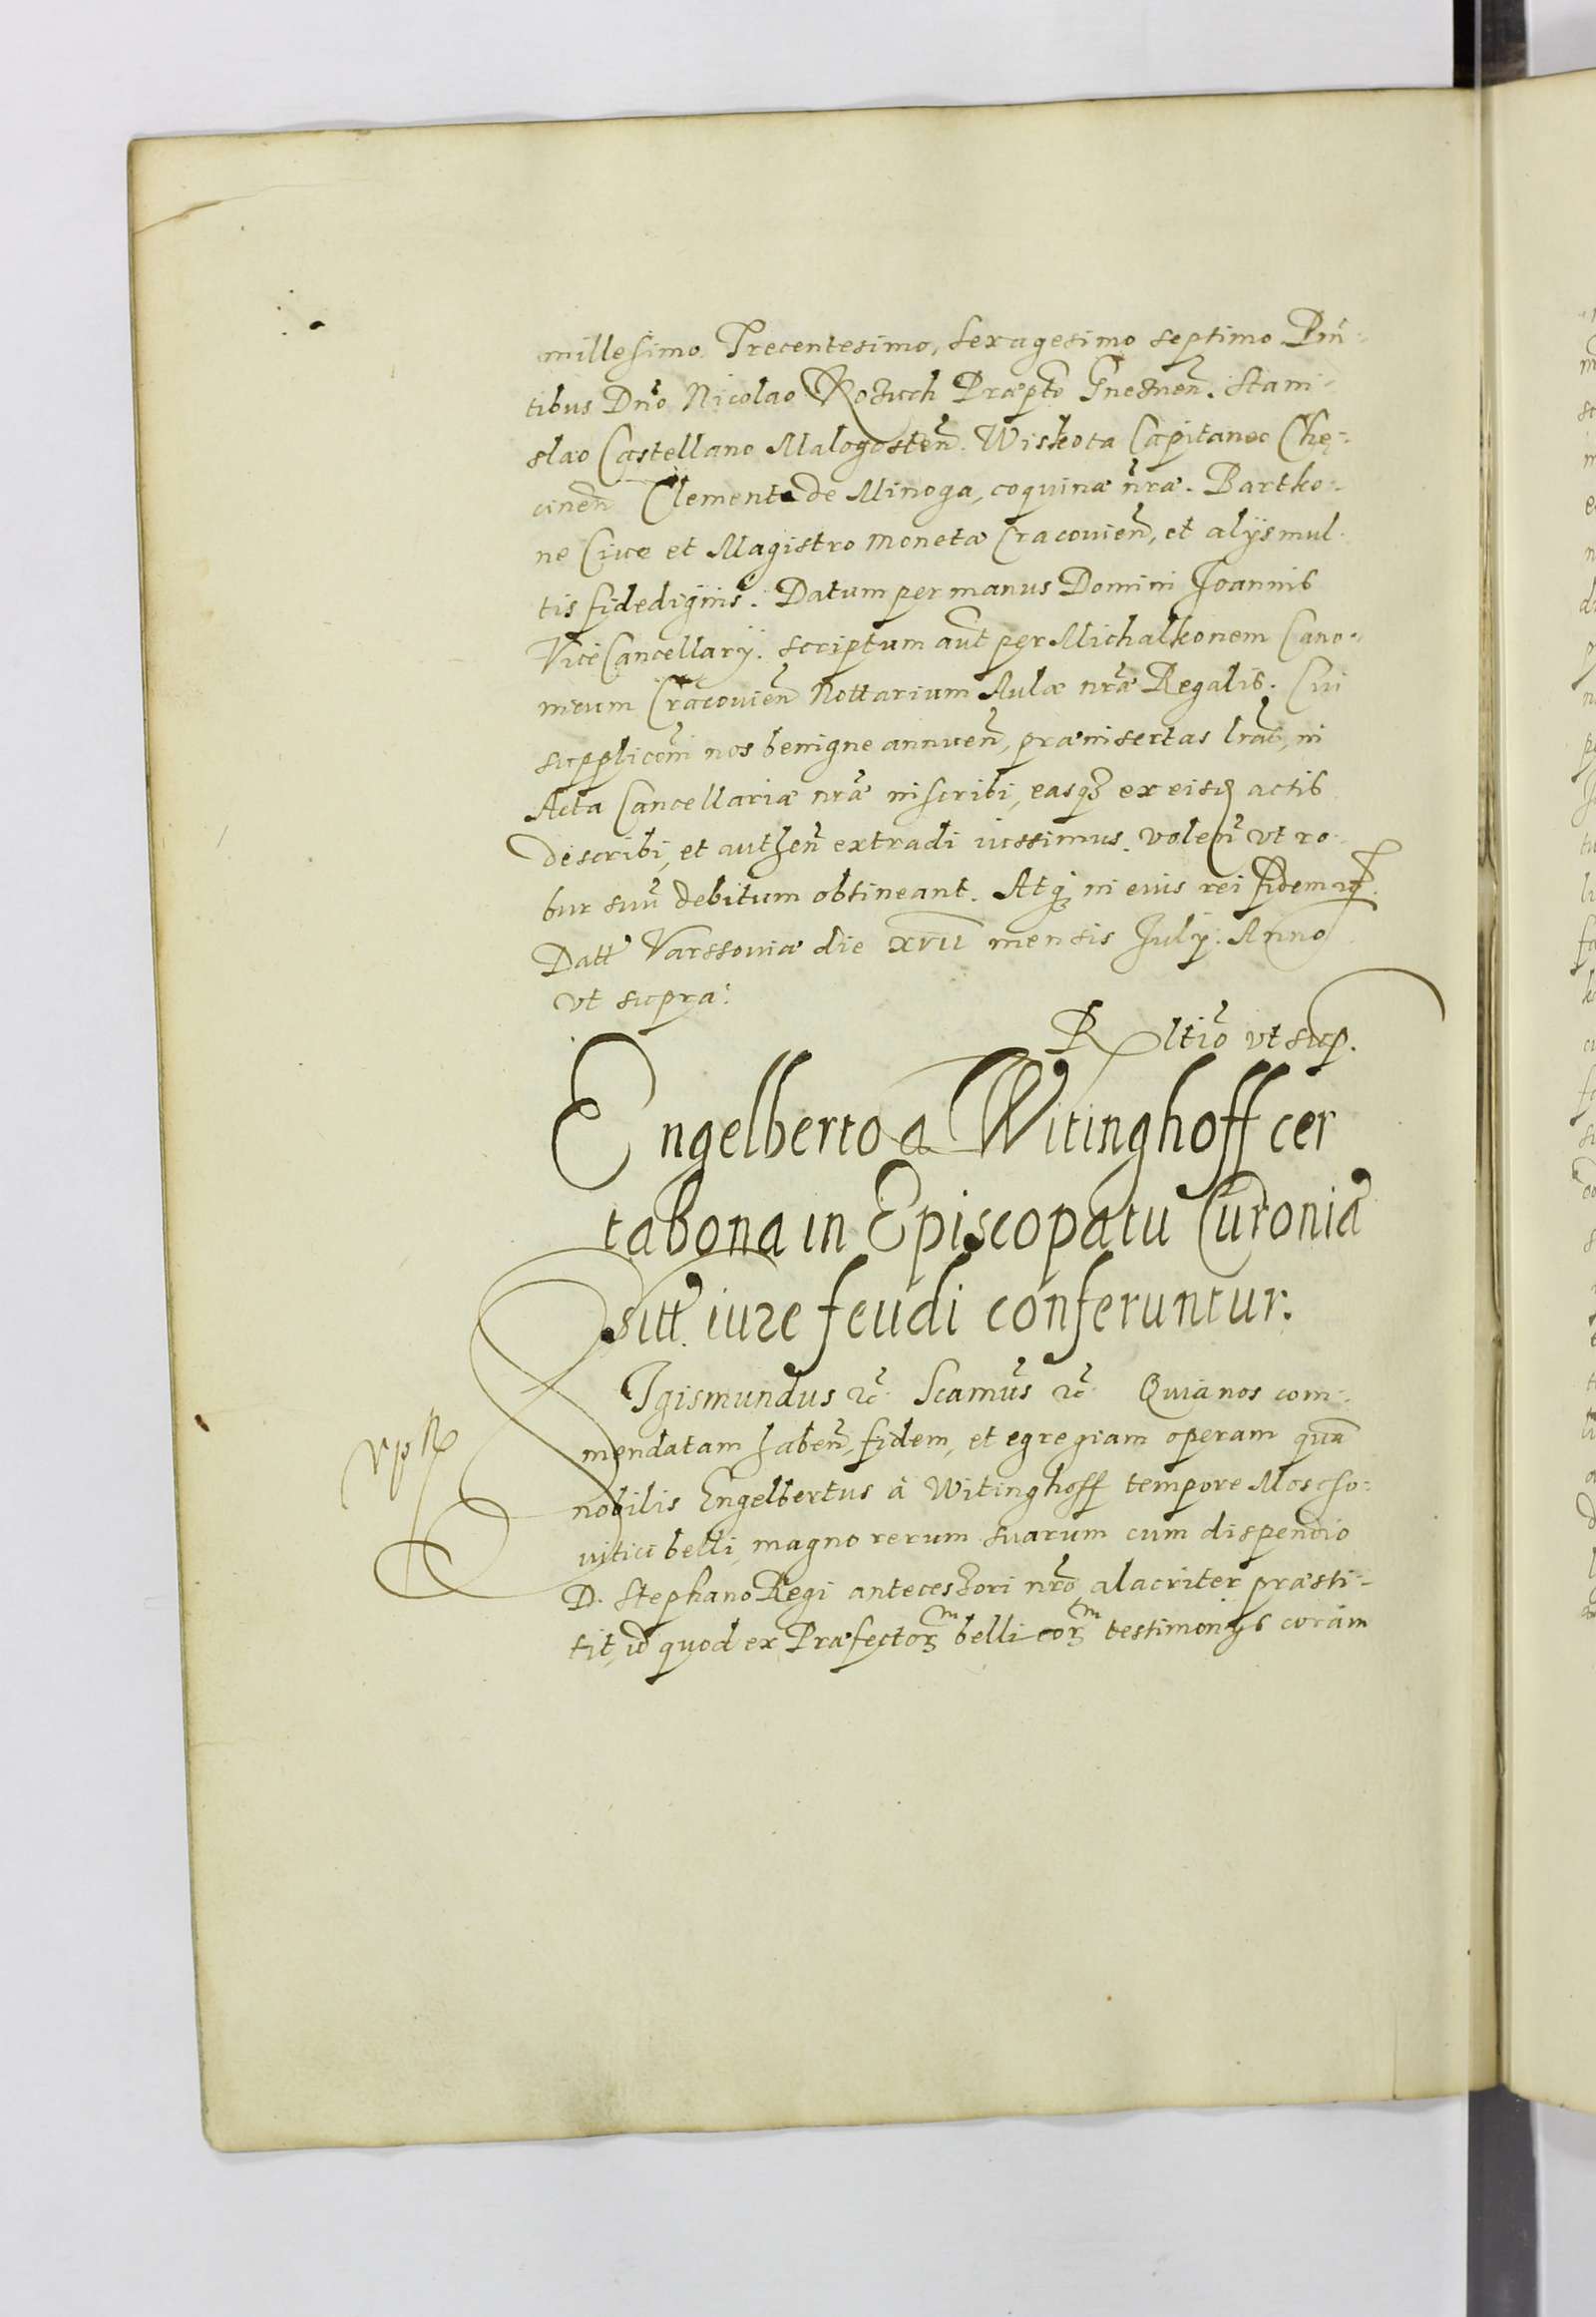 millesimo Trecentesimo, sexagesimo septimo Pñ-
tibus Dño Nicolao Rozuch Præpto Gneznen̄. Stani-
slao Castellano Malogosten̄. Wiskota Capitaneo Chę-
cinen̄ Clemente de Minoga, coquinæ nr̃æ. Bartko-
ne Ciue et Magistro monetæ Cracouien̄, et alijs mul-
tis fidedignis. Datum per manus Domini Joannis
ViceCancellarij. scriptum aũt per Michalkonem Cano-
nicum Cracouien̄ Nottarium Aulæ nr̃æ Regalis. Cui
supplicõni nos benigne annuen̄, præinsertas lr̃as, in
Acta Cancellariæ nr̃æ inscribi, easq3 ex eisd actis
describi, et authen̄ extradi iussimus. volen̄ vt ro-
bur suũ debitum obtineant. Atq3 in eius rei fidem
Datt Varssouiæ die XVII mensis July. Anno
vt supra.
R ltio vt sup.
Engelberto a Witinghoff cer
ta bona in Episcopatu Curoniæ
sitt. iure feudi conferuntur.
SIgismundus &c. Scamus &c. Quia nos com-
mendatam haben̄, fidem, et egregiam operam quã
nobilis Engelbertus à Witinghoff tempore Moscho-
uitici belli, magno rerum suarum cum dispendio
D. Stephano Regi antecessori nr̃o alacriter præsti-
tit, id quod ex Præfectorm belli eorm testimonijs coràm